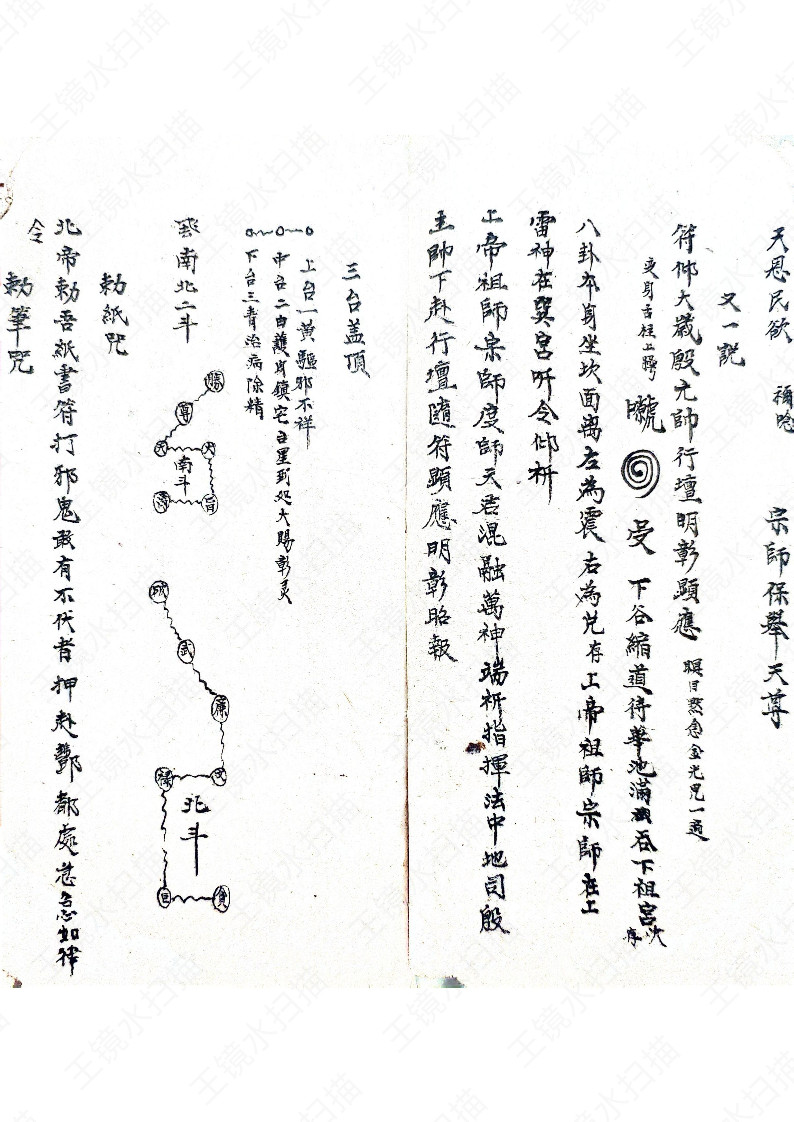 天恩民欲 宗師保舉天尊
又一說
符仰大歲殷元帥行壇明彰顯應 瞑目默念金光咒一遍
变身舌柱上腭 受 下谷縮道待華池滿 吞下祖宮 次存
八卦本身坐坎面离左為震右為兑存上帝祖師宗師在上
雷神在巽宮听令仰祈
上帝祖師宗師度師天君混融萬神端祈指揮法中地司殷
主帥下赴行壇隨符顕應明彰昭報
三台盖頂
上台一黃驅邪不祥
中台二白護身鎮宅五星到処大賜彰灵
下台三青治病除精
南北二斗
南斗
北斗
武
廉
貪
勅紙咒
北帝勅吾紙書符打邪鬼敢有不伏者押赴酆都處急急如律
令
勅筆咒
王镜水扫描